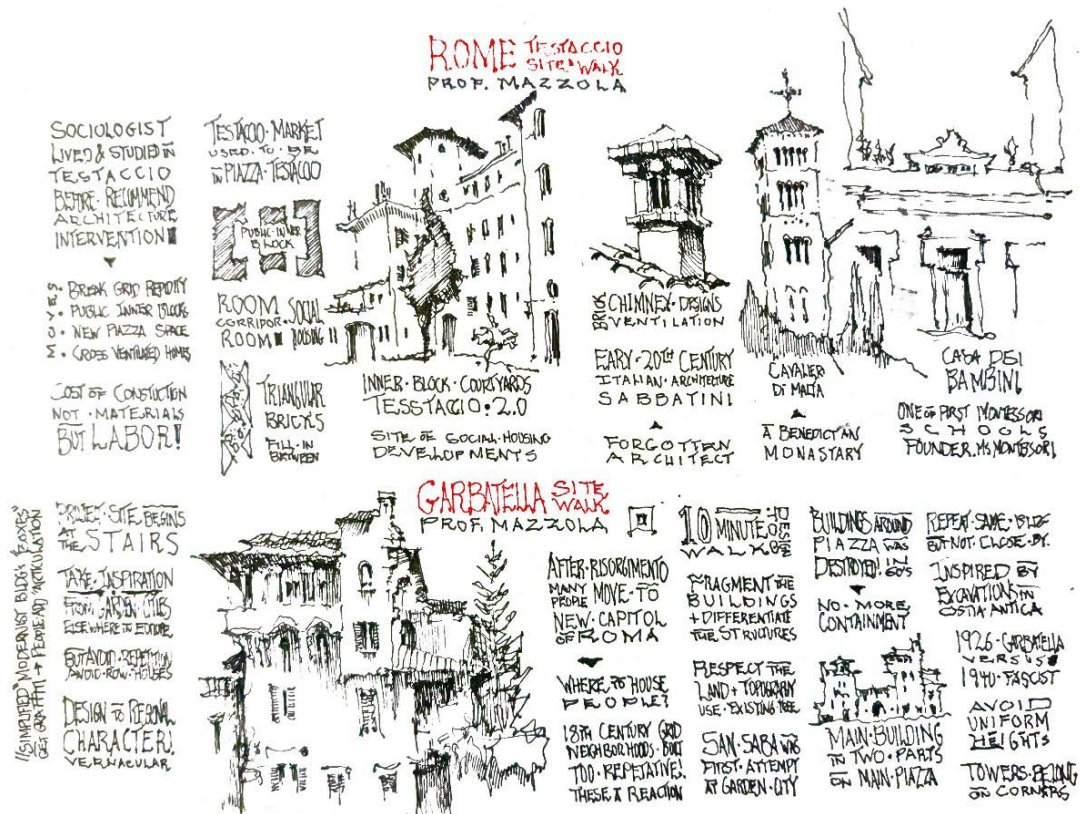 ROME TESTACCIO
SITE WALK
PROF. MAZZOLA
SOCIOLOGIST
LIVED & STUDIED IN
TESTACCIO
BEFORE RECOMMEND
ARCHITECTURE
INTERVENTION
• BREAK GRID
• PUBLIC INNER BLOCKS
• NEW PIAZZA SPACE
• CROSS VENTILATED HOMES
COST OF CONSTUCTION
NOT • MATERIALS
BUT LABOR!
TESTACCIO • MARKET
USED • TO • BE
IN PIAZZA • TESTACCIO
PUBLIC • INNER
BLOCK
ROOM
CORRIDOR
ROOM
SOCIAL
HOUSING
TRIANGULAR
BRICKS
FILL • IN
BETWEEN
INNER • BLOCK • COURTYARDS
TESSTACCIO • 2.0
SITE OF SOCIAL • HOUSING
DEVELOPMENTS
BRICK CHIMNEY • DESIGNS
VENTILATION
EARY • 20TH CENTURY
ITALIAN • ARCHITECTURE
SABBATINI
FORGOTTEN
ARCHITECT
CAVALIERI
DI MALTA
A BENEDICTAN
MONASTARY
CASA DEI
BAMBINI
ONE OF FIRST MONTESSORI
SCHOOLS
FOUNDER. MS MONTESSORI
GARBATELLA SITE
WALK
PROF. MAZZOLA
"SIMPLIFIED" MODERNIST BLDGS "BOXES"
GET GRAFFITI → PEOPLE ADD "ARTICULATION"
PROJECT • SITE BEGINS
AT THE STAIRS
TAKE • INSPIRATION
FROM GARDEN CITIES
ELSEWHERE IN EUROPE
BUT AVOID • REPETITION
AVOID • ROW • HOUSES
DESIGN TO REGIONAL
CHARACTER!
VERNACULAR
AFTER • RISORGIMENTO
MANY PEOPLE MOVE • TO
NEW • CAPITOL
OF ROMA
WHERE TO HOUSE
PEOPLE?
18TH CENTURY GRID
NEIGHBORHOODS • BUILT
TOO • REPETATIVE!
THESE A REACTION
10 MINUTE
WALK
FRAGMENT THE
BUILDINGS
+ DIFFERENTIATE
THE STRUCTURES
RESPECT THE
LAND + TOPOGRAPHY
USE • EXISTING TREE
SAN • SABA WAS
FIRST • ATTEMPT
AT GARDEN • CITY
BUILDINGS AROUND
PIAZZA WAS
DESTROYED! IN 60'S
NO • MORE
CONTAINMENT
MAIN • BUILDING
IN TWO • PARTS
ON MAIN • PIAZZA
REPEAT • SAME • BLDG
BUT NOT • CLOSE • BY.
INSPIRED BY
EXCAVATIONS IN
OSTIA ANTICA
1926 • GARBATELLA
VERSUS
1940 • FASCIST
AVOID
UNIFORM
HEIGHTS
TOWERS • BELONG
ON CORNERS